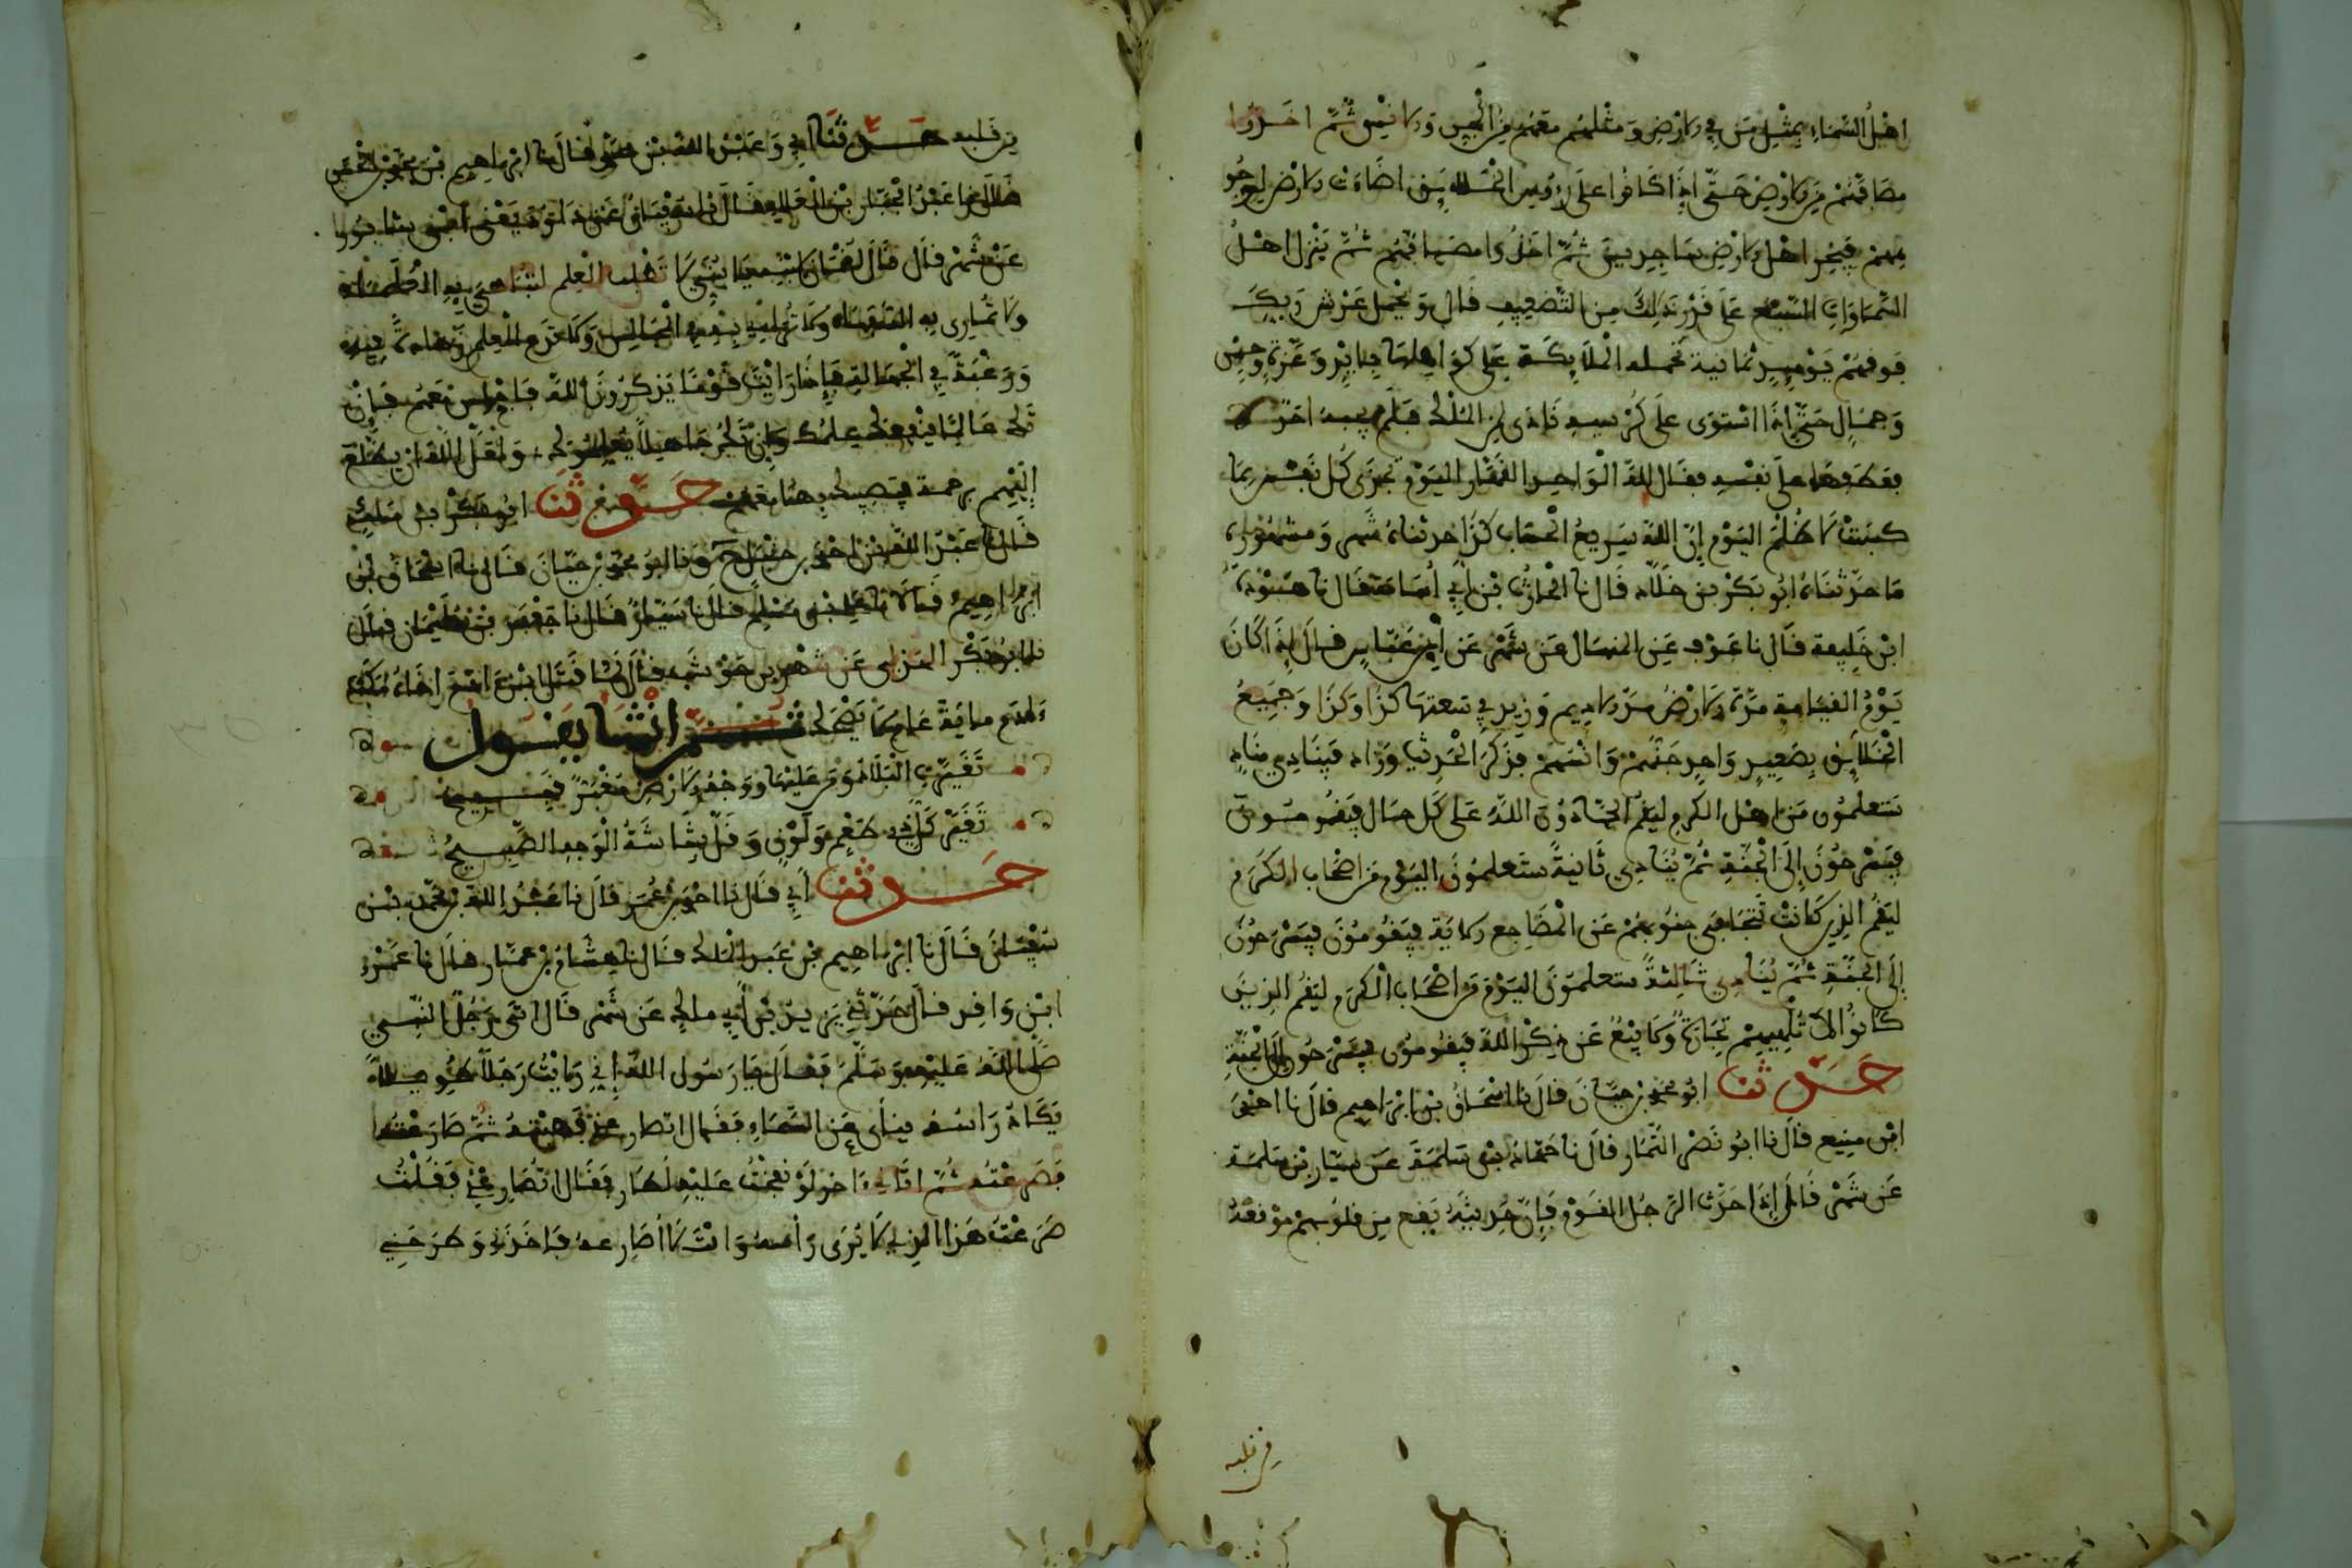 اهل السماء بمثلي من في الارض ومثلهم معهم من الجن والانس ثم اخذوا
مصافهم من الارض حتى اذا كانوا على رءوس الخلائق اضاءت الارض لوجو
ههم فيخر اهل الارض ساجدين ثم اخذوا مصافهم ثم ينزل اهل
السماوات السبع على قدر ذلك من التضعيف قال ويحمل عرش ربك
فوقهم يومئذ ثمانية تحمله الملائكة على كواهلها بايد وعزة وحسن
وجمال حتى اذا استوى على كرسيه نادى لمن الملك فلم يجبه احد
فعطفها على نفسه فقال لله الواحد القهار اليوم تجزى كل نفس بما
كسبت لا ظلم اليوم ان الله سريع الحساب كذا حدثناه شهر ومشهوره
ما حدثناه ابو بكر بن خلاد قال نا الحارث بن ابي اسامة قال نا هوذة
ابن خليفة قال نا عوف عن المنهال عن شهر عن ابن عباس قال اذا كان
يوم القيامة مدت الارض مد الاديم وزيد في سعتها كذا وكذا وجميع
الخلائق بصعيد واحد جنهم وانسهم فذكر الحديث وزاد فينادي مناد
ستعلمون من اهل الكرم ليقم الحمادون الله على كل حال فيقومون
فيسرحون الى الجنة ثم ينادي ثانية ستعلمون اليوم من اصحاب الكرم
ليقم الذين كانت تتجافى جنوبهم عن المضاجع الاية فيقومون فيسرحون
الى الجنة ثم ينادي ثالثة ستعلمون اليوم من اصحاب الكرم ليقم الذين
كانوا لا تلهيهم تجارة ولا بيع عن ذكر الله فيقومون فيسرحون الى الجنة
حدثنا ابو محمد بن حيان قال نا اسحاق بن ابراهيم قال نا احمد
ابن منيع قال نا ابو نصر التمار قال نا حماد بن سلمة عن سيار بن سلمة
عن شهر قال اذا حدث الرجل القوم فان حديثه يقع من قلوبهم موقعه
من قلبه
من قلبه حدثنا ابي وعبد الله بن محمد قالا نا ابراهيم بن محمد بن الحسن
قال نا عبد الجبار بن العلاء قال نا سفيان عن داود يعني ابن شابور
عن شهر قال قال لقمان لابنه يا بني لا تطلب العلم لتباهي به العلماء
ولا تماري به السفهاء ولا ترائي به في المجالس ولا تدع العلم زهادة فيه
ورغبة في الجهالة فاذا رايت قوما يذكرون الله فاجلس معهم فان
تك عالما ينفعك علمك وان تك جاهلا يعلموك ولعل الله ان يطلع
اليهم برحمة فيصيبك بها معهم حدثنا ابو بكر بن مالك
قال نا عبد الله بن احمد بن حنبل ح ونا ابو محمد بن حيان قال نا اسحاق بن
ابراهيم قالا نا علي بن مسلم قال نا سيار قال نا جعفر بن سليمان قال
نا ابو بكر الهذلي عن شهر بن حوشب قال لما قتل ابن ادم اخاه مكث
ادم مائة عام لا يضحك ثم انشا يقول
تغيرت البلاد ومن عليها ووجه الارض مغبر قبيح
تغير كل ذي طعم ولون وقل بشاشة الوجه الصبيح
حدثنا ابي قال نا احمد بن عمر قال نا عبد الله بن محمد بن
سفيان قال نا ابراهيم بن عبد الملك قال نا هشام بن عمار قال نا عمرو
ابن واقد قال حدثني يزيد بن ابي مالك عن شهر قال اتى رجل النبي
صلى الله عليه وسلم فقال يا رسول الله اني رايت رجلا طويلا
يكاد راسه ينال عن السماء فقال اتصارعني ثم صارعته
فصرعته ثم اتاني اخر لو نفخت عليه لطار فقال اتصارعني فقلت
صرعت هذا الذي لا يرى راسه وانت لا اصارعه فاخذني وطرحني